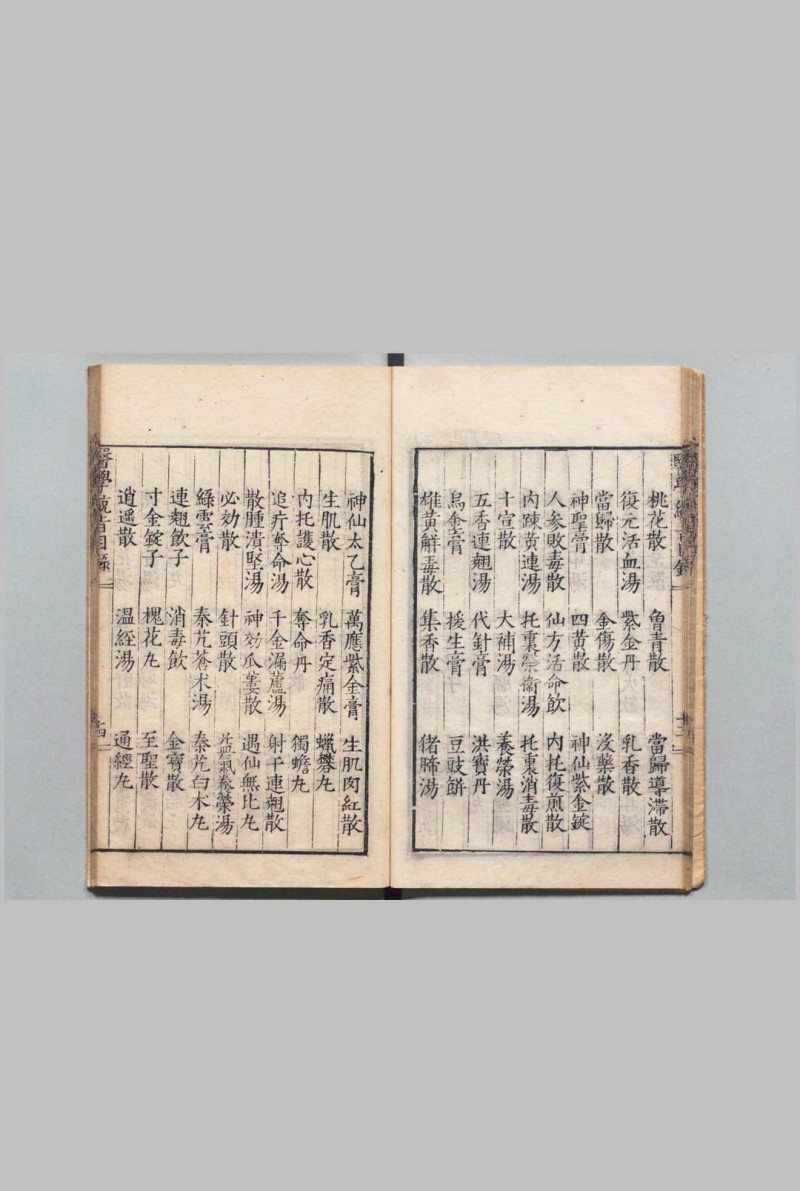 桃花散 魯青散 當歸導滯散
復元活血湯 紫金丹 乳香散
當歸散 金傷散 沒藥散
神聖膏 四黃散 神仙紫金錠
人參敗毒散 仙方活命飲 內托復煎散
內踈黃連湯 托裏榮衛湯 托裏消毒散
十宣散 大補湯 養榮湯
五香連翹湯 代針膏 洪寶丹
烏金膏 援生膏 豆豉餅
雄黃解毒散 集香散 猪蹄湯
神仙太乙膏 萬應紫金膏 生肌肉紅散
生肌散 乳香定痛散 蠟礬丸
內托護心散 奪命丹 獨蟾丸
追疔奪命湯 千金漏蘆湯 射干連翹散
散腫潰堅湯 神効瓜蔞散 遇仙無比丸
必効散 針頭散 益氣養榮湯
綠雲膏 秦艽蒼术湯 秦艽白术丸
連翹飲子 消毒飲 金寶散
寸金錠子 槐花丸 至聖散
逍遥散 温經湯 通經丸
醫學 目錄